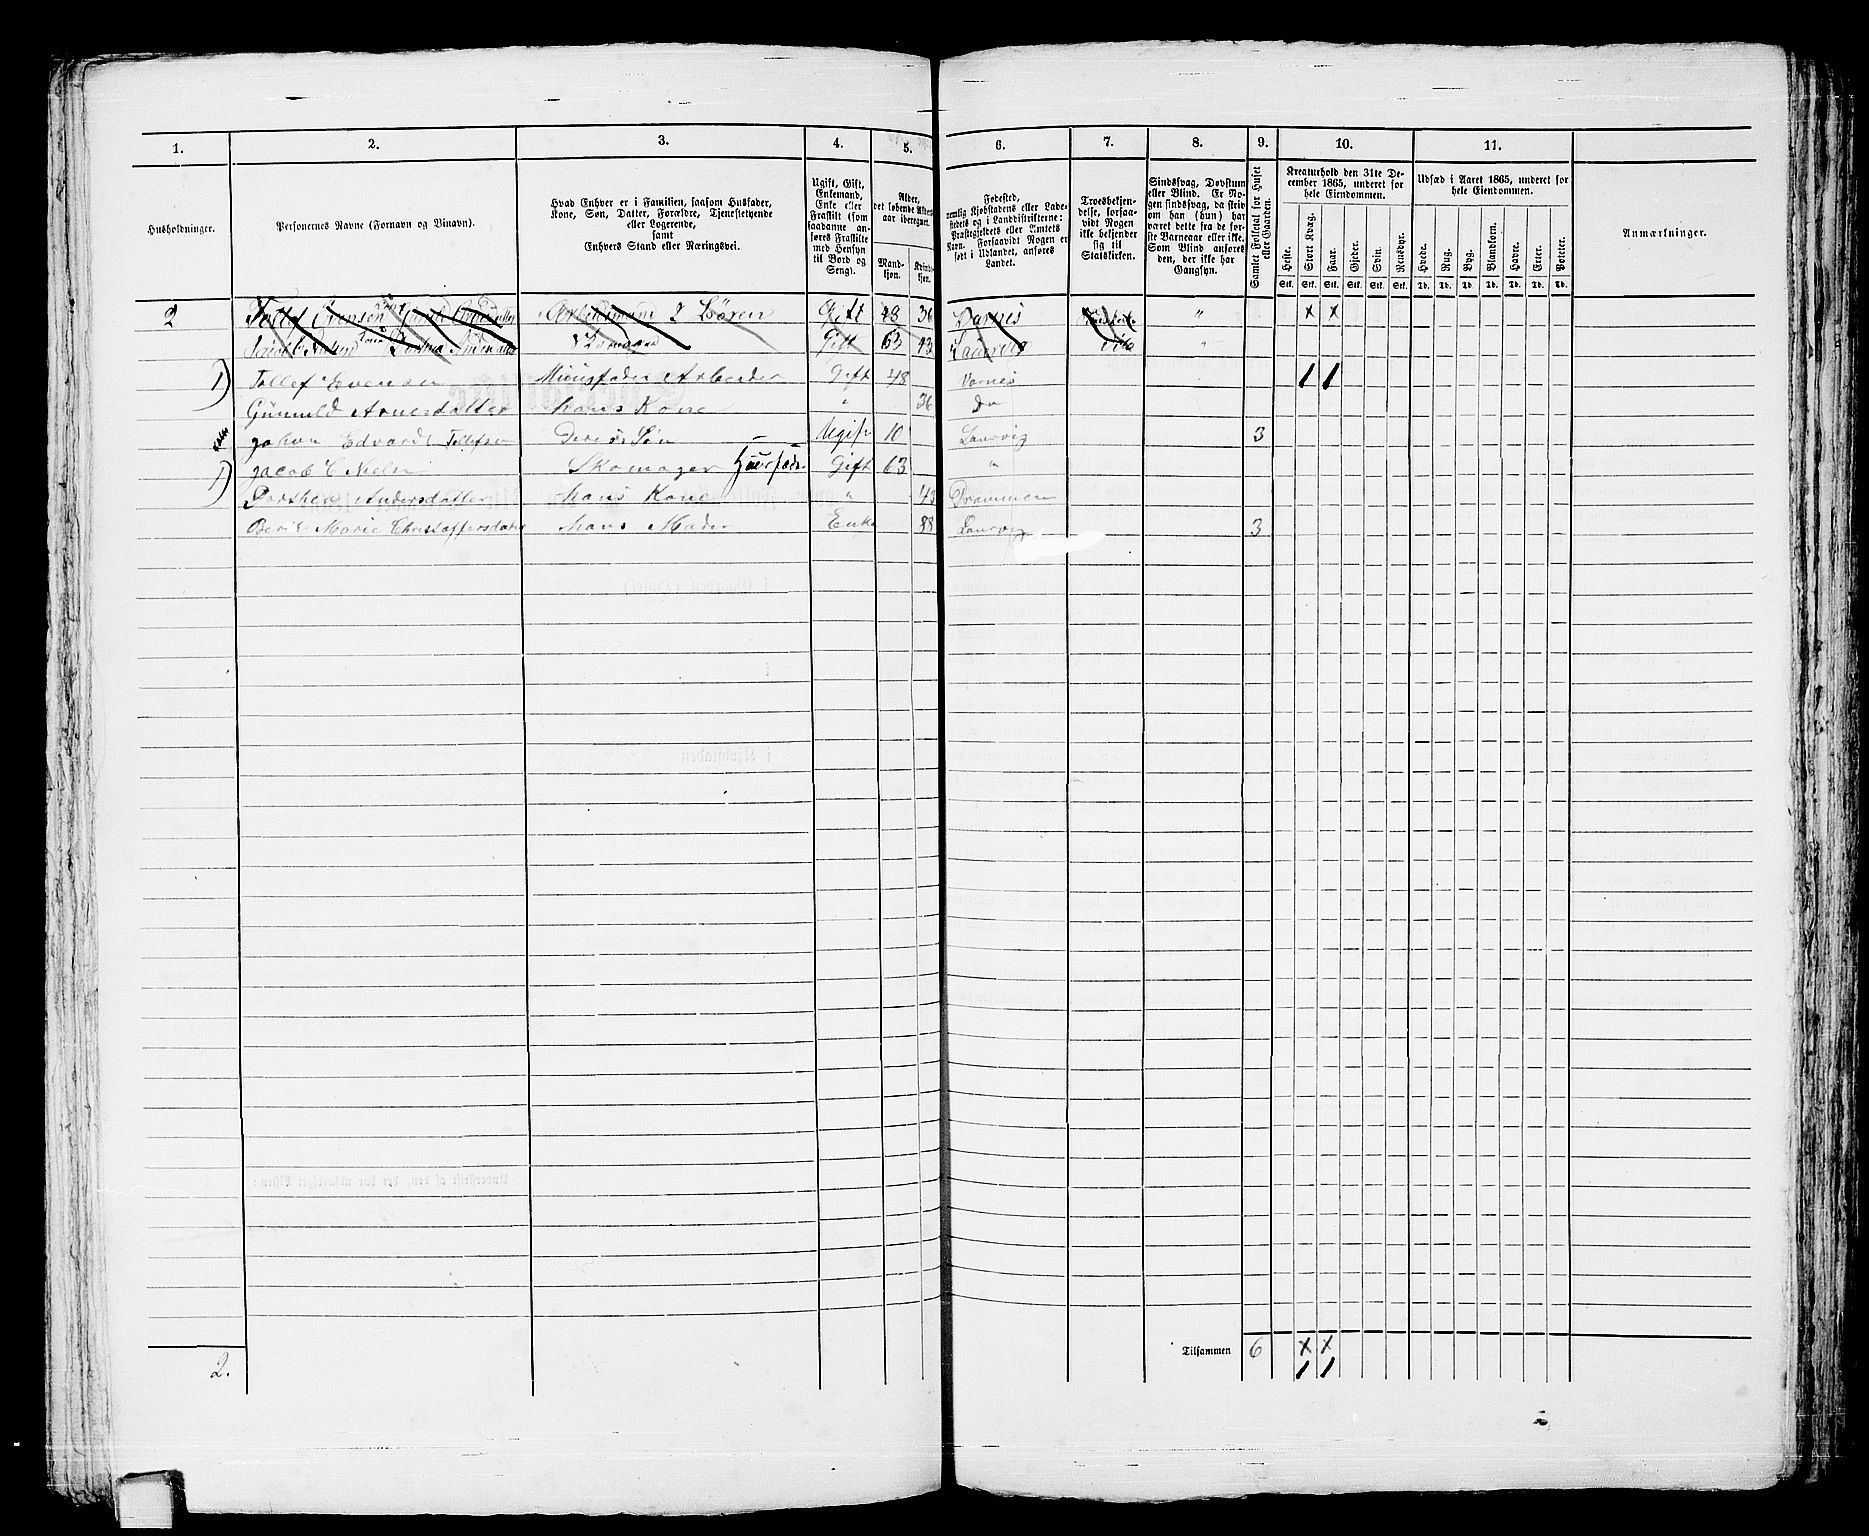 1. 2. 3. 4. 5. 6. 7. 8. 9. 10. 11.
Husholdninger.
Personernes Navne (Fornavn og Binavn).
Hvad Enhver er i Familien, saasom Husfader,
Kone, Søn, Datter, Forældre, Tjenestetyende
eller Logerende,
samt
Enhvers Stand eller Næringsvei.
Ugift, Gift,
Enkemand,
Enke eller
Fraskilt (som
saadanne an-
føres Fraskilte
med Hensyn
til Bord og
Seng).
Alder,
det løbende Alders-
aar iberegnet.
Mand-
kjøn.
Kvinde-
kjøn.
Fødested,
nemlig Kjøbstadens eller Lade-
stedets og i Landdistrikterne:
Præstegjeldets eller Amtets
Navn. Forsaavidt Nogen er
født i Udlandet, anføres
Landet.
Troesbekjen-
delse, forsaa-
vidt Nogen
ikke bekjender
sig til
Statskirken.
Sindssvag, Døvstum
eller Blind. Er No-
gen sindssvag, da skriv
om han (hun) har
været dette fra de før-
ste Barneaar eller ikke.
Som Blind anføres
den, der ikke har
Gangsyn.
Samlet Folketal for Huset
eller Gaarden.
Kreaturhold den 31te De-
cember 1865, underet for
hele Eiendommen.
Heste. Stort Kvæg. Faar. Gjeder. Svin. Rensdyr.
Stk. Stk. Stk. Stk. Stk. Stk.
Udsæd i Aaret 1865, underet for
hele Eiendommen.
Hvede. Rug. Byg. Blandkorn. Havre. Erter. Poteter.
Td. Td. Td. Td. Td. Td. Td.
Anmærkninger.
2 Tollef Evensen Gift 48 36 Varnes " x x
Jacob C Nielsen Gift 63 43 Laurvig "
1) Tollef Evensen Huusfader Arbeider Gift 48 Varnes 1 1
Gunnild Arnesdatter hans Kone " 36 Do
Johan Edvard Tollefsen Deres Søn Ugift 10 Laurvig 3
1) Jacob C Nielsen Skomager Huusfader Gift 63 "
Dorthea Andersdatter hans Kone " 43 Drammen
Marie Christoffersdatter hans Moder Enke 88 Laurvig 3
Tilsammen 6 x x
2. 1 1